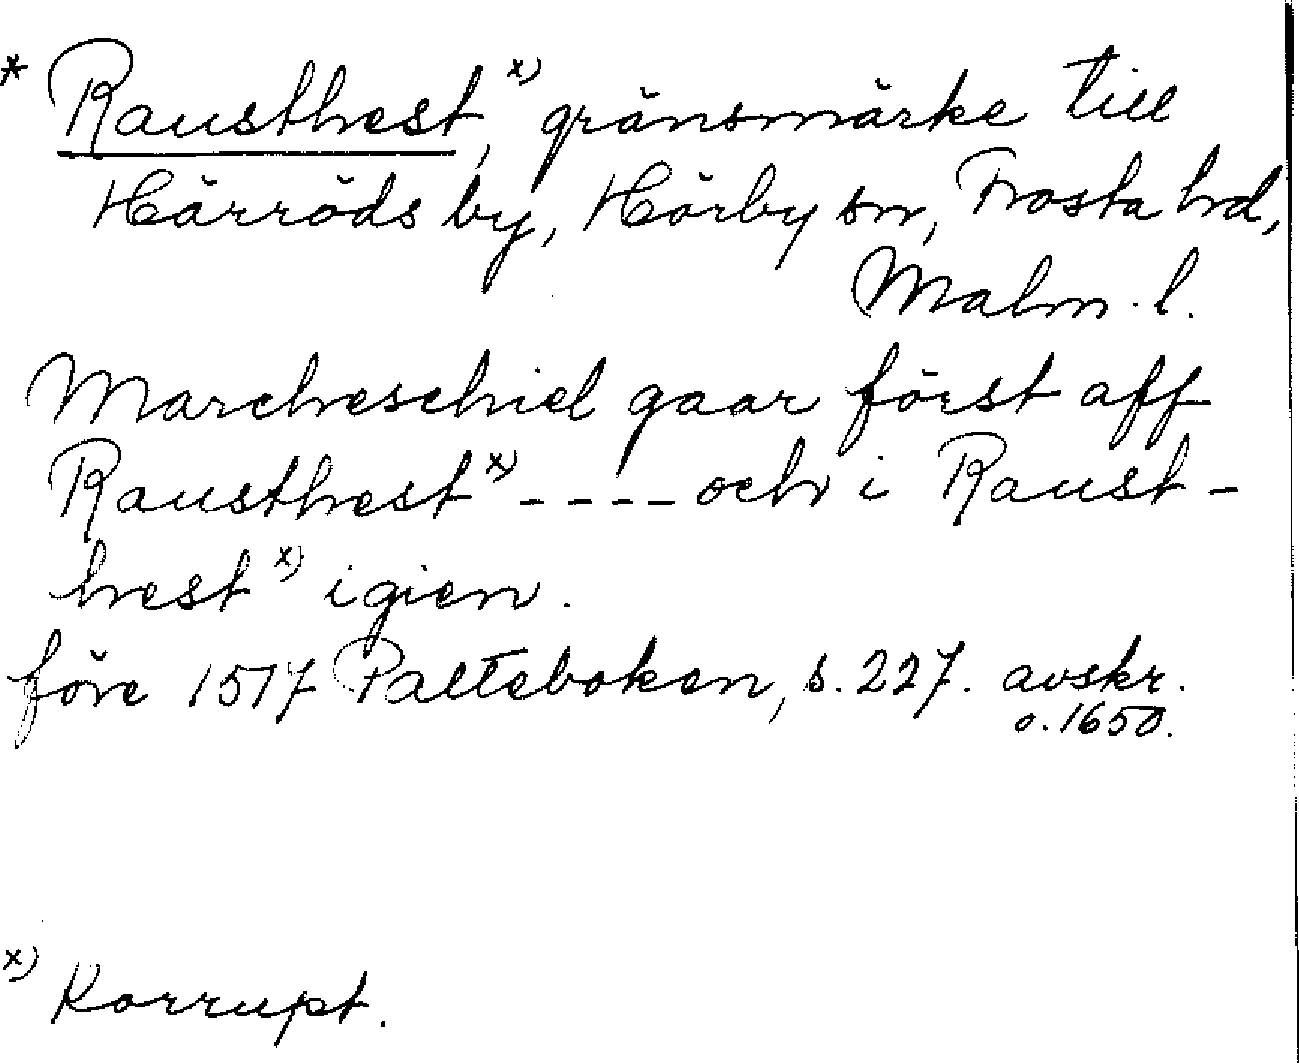 * Rausthest,ˣ⁾ gränsmärke till
Härröds by, Hörby sn, Frosta hd,
Malm. l.
Marcheschiel gaar först aff
Rausthestˣ⁾ - - - - och i Raust-
hestˣ⁾ igien.
före 1517 Palteboken, s. 227. avskr.
o. 1650.
ˣ⁾ Korrupt.